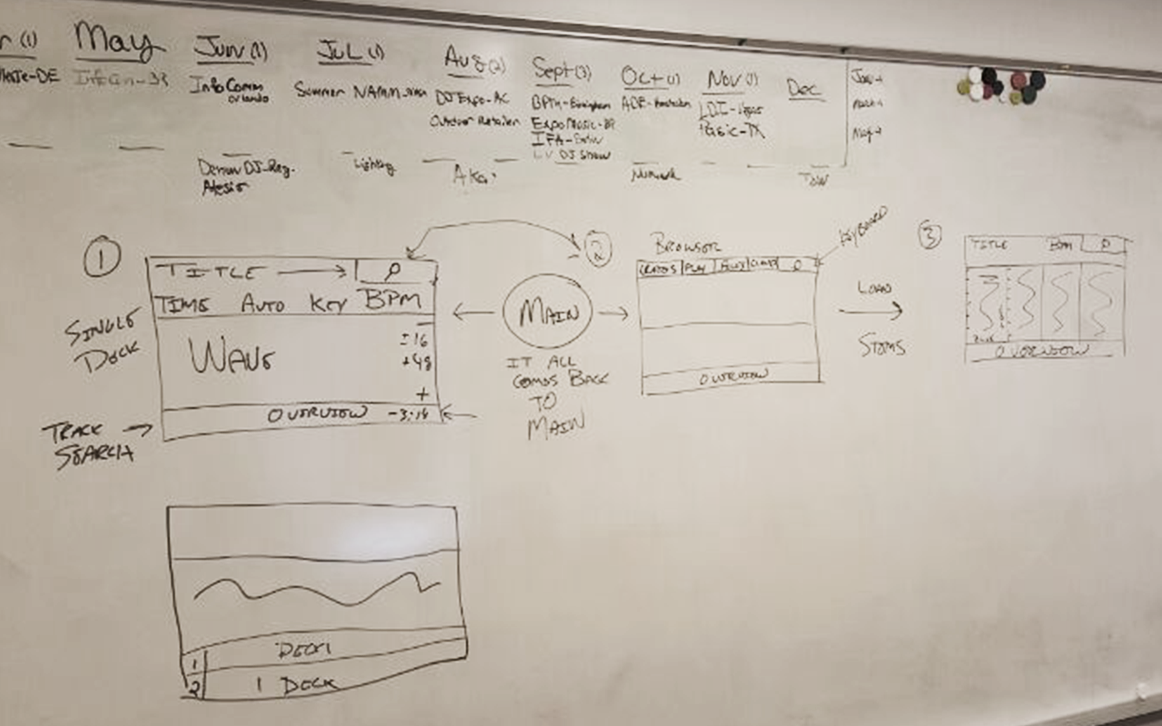 r (1)
May
Jun (1)
JUL (1)
Aug (2)
Sept (3)
Oct (1)
Nov (1)
Dec
InfoComm
orlando
Summer NAMM
DJ Expo-AC
Outdoor Retailer
BPM-Birmingham
ExpoMusic-BR
IFA-Berlin
LV DJ Show
ADE-Amsterdam
LDI-Vegas
Denon DJ-Reg.
Alesis
Lighting
Akai
Numark
①
SINGLE
DECK
TITLE
TIME AUTO KEY BPM
WAVE
±16
+
OVERVIEW -3:14
TRACK
SEARCH
MAIN
IT ALL
COMES BACK
TO
MAIN
②
BROWSER
KEYBOARD
OVERVIEW
LOAD
STEMS
③
TITLE BPM
OVERVIEW
1 DECK 1
2 1 DECK